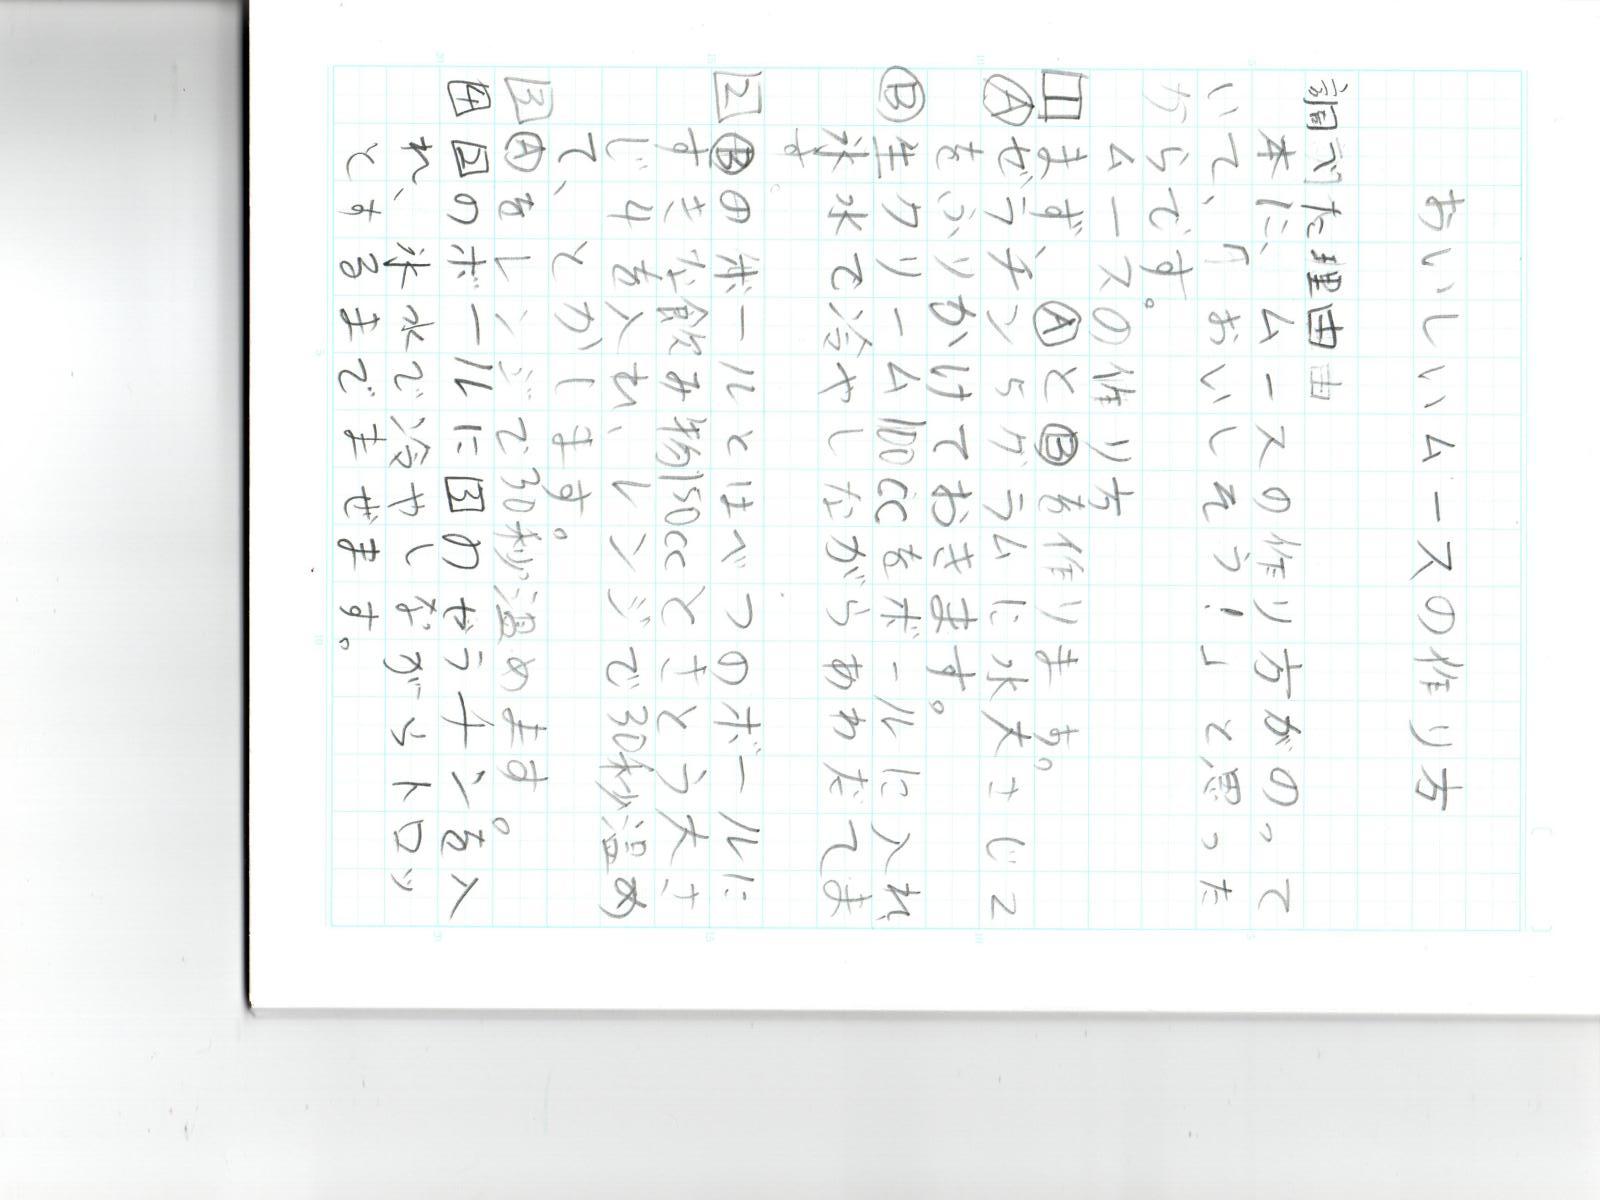 おいしいムースの作り方
調べた理由
本に、ムースの作り方がのって
いて、「おいしそう!」と思った
からです。
ムースの作り方
1 まず、AとBを作ります。
A ゼラチン5グラムに水大さじ2
をふりかけておきます。
B 生クリーム100ccをボールに入れ
氷水で冷やしながらあわだてま
す。
2 Bのボールとはべつのボールに
すきな飲み物150ccとさとう大さ
じ4を入れ、レンジで30秒温め
て、とかします。
3 Aをレンジで30秒温めます。
4 2のボールに3のゼラチンを入
れ、氷水で冷やしながらトロッ
とするまでまぜます。